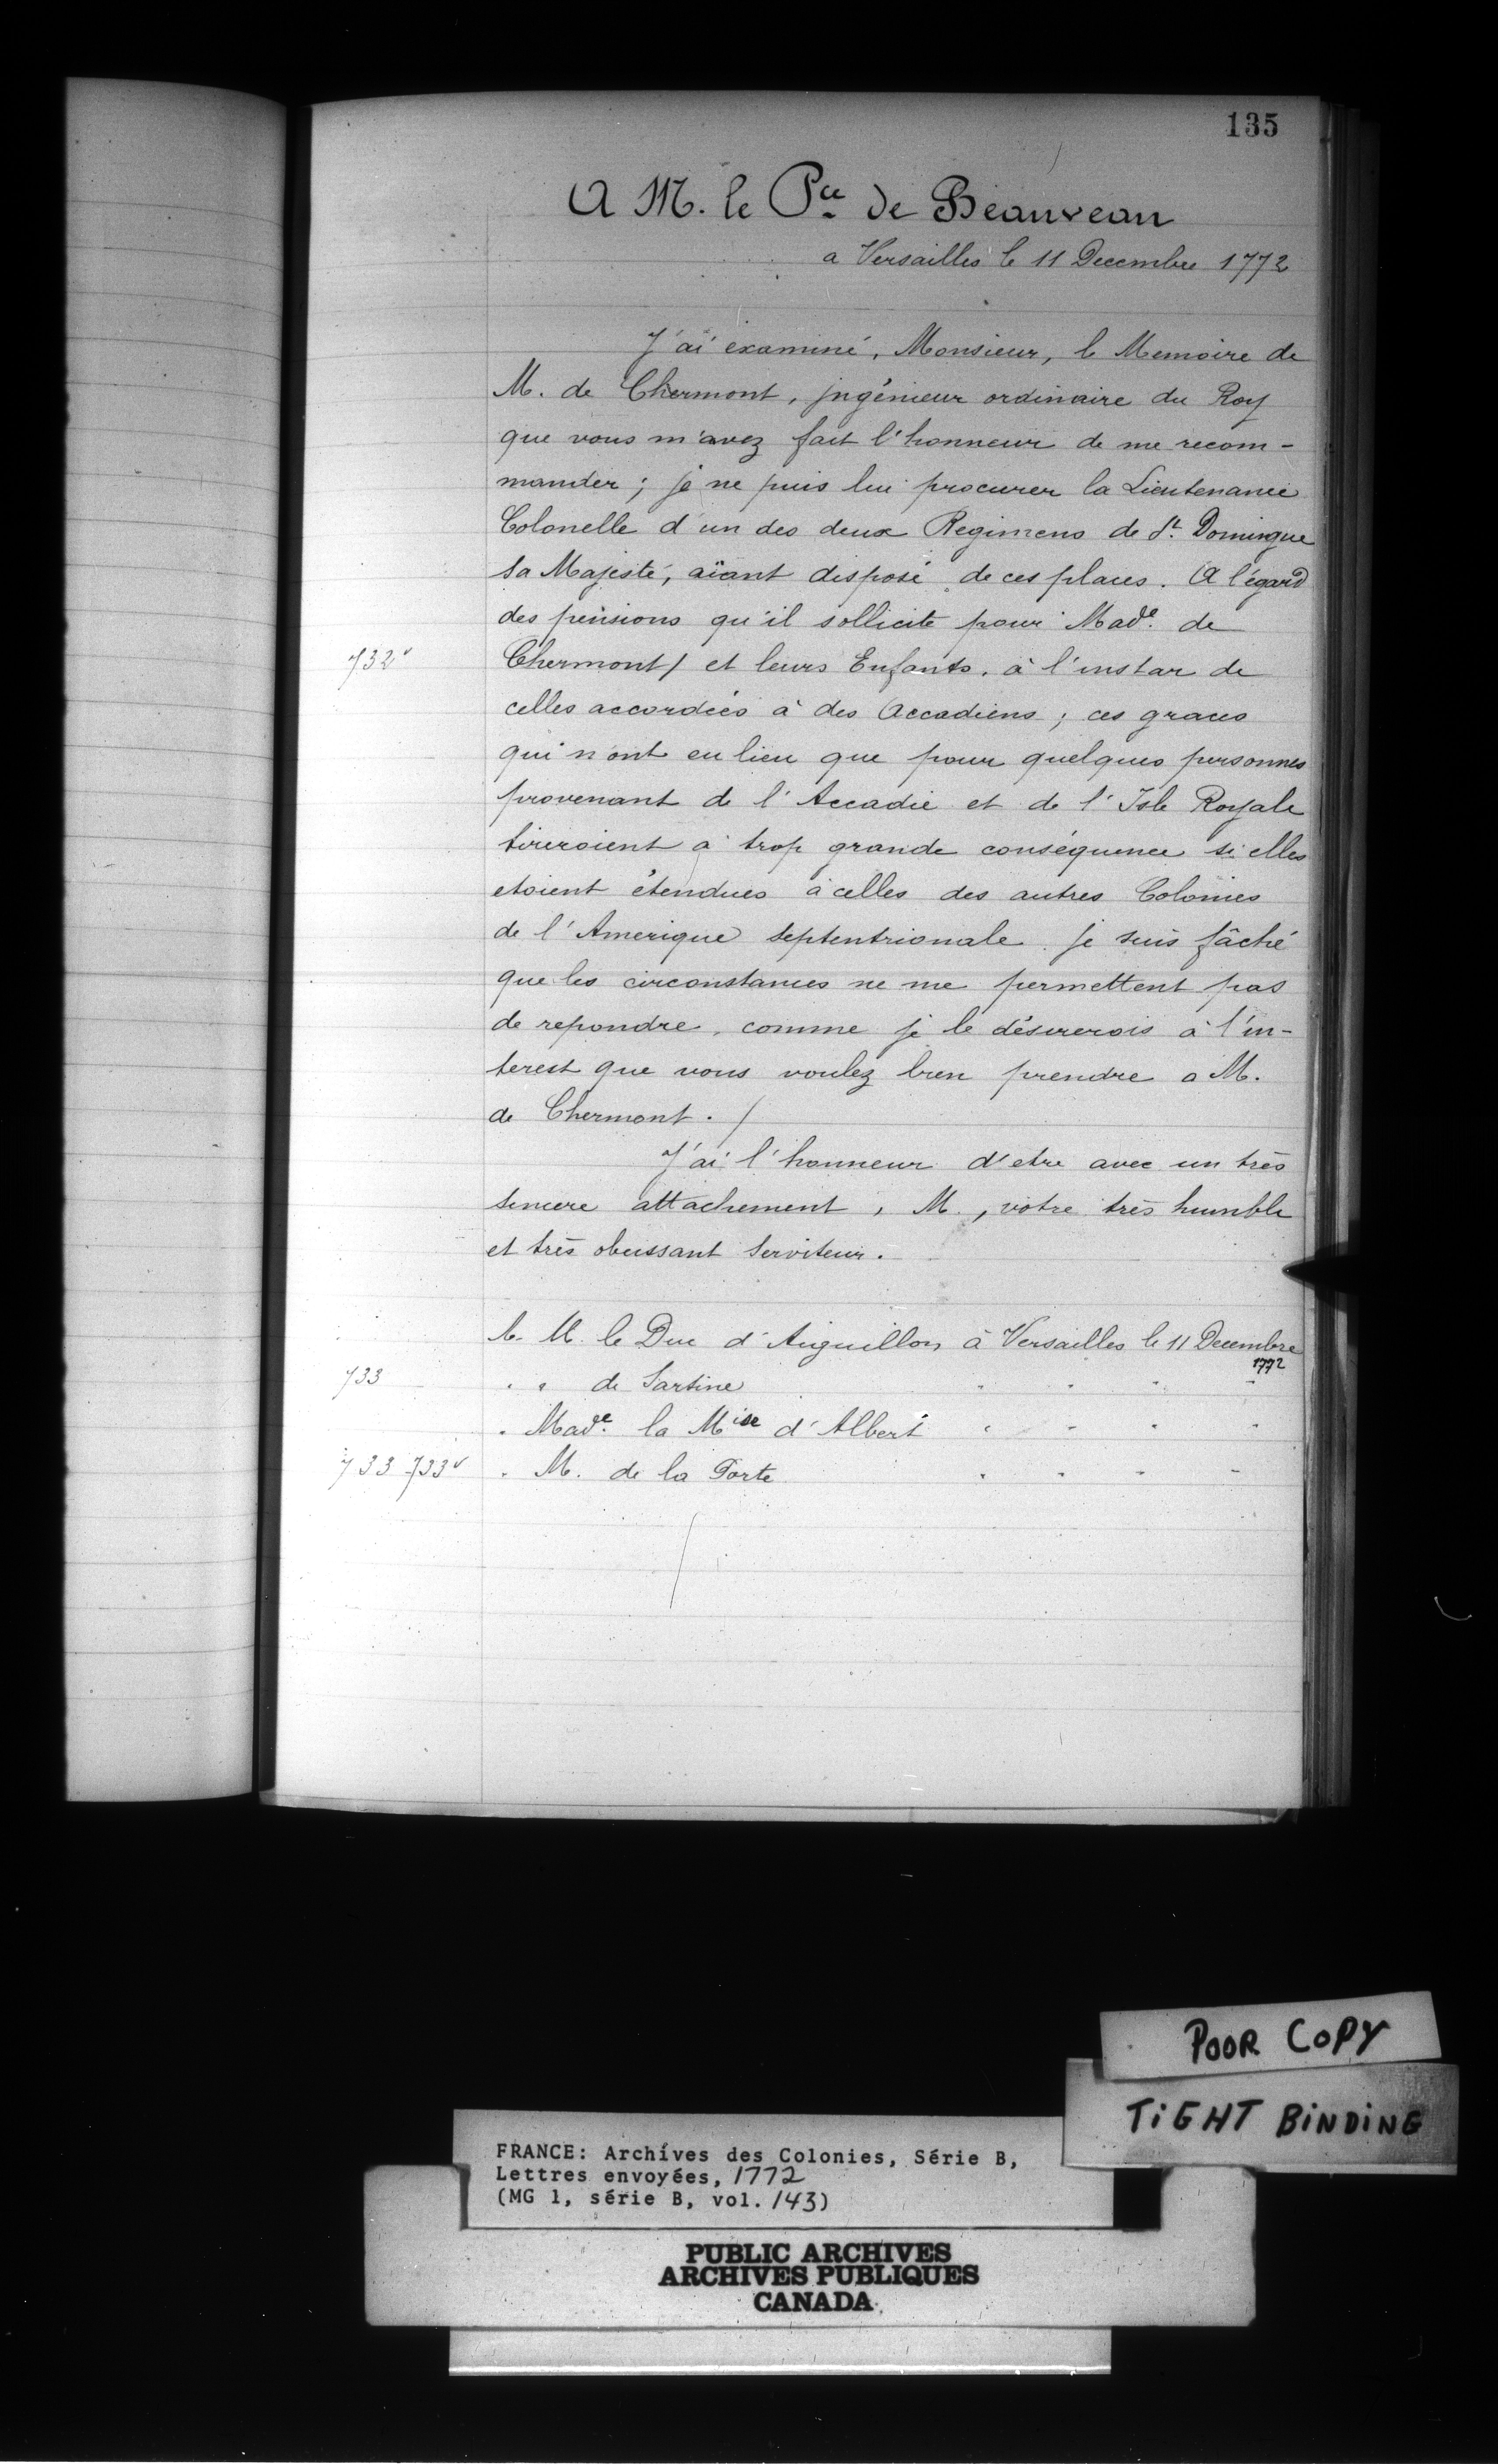 135
A M. le Pce de Beauveau
a Versailles le 11 Decembre 1772
J'ai examiné, Monsieur, le Memoire de
M. de Chermont, ingénieur ordinaire du Roy
que vous m'avez fait l'honneur de me recom-
mander ; je ne puis lui procurer la Lieutenance
Colonelle d'un des deux Regimens de St. Domingue
Sa Majesté, aïant disposé de ces places. A l'égard
des pensions qu'il sollicite pour Made. de
732v Chermont/ et leurs Enfants, à l'instar de
celles accordées à des Accadiens ; ces graces
qui n'ont eu lieu que pour quelques personnes
provenant de l'Accadie et de l'Isle Royale
tireroient à trop grande conséquence si elles
etoient étendues à celles des autres Colonies
de l'Amerique septentrionale. je suis fâché
que les circonstances ne me permettent pas
de repondre, comme je le désirerois à l'in-
terest que vous voulez bien prendre a M.
de Chermont. /
J'ai l'honneur d'etre avec un très
sincere attachement, M., votre très humble
et très obeissant Serviteur.
A. M. le Duc d'Aiguillon à Versailles le 11 Decembre
1772
733 " " de Sartine " " " "
" Made. la Mise d'Albert " " " "
733-733v " M. de la Porte " " " "
POOR COPY
TIGHT BINDING
FRANCE: Archives des Colonies, Série B,
Lettres envoyées, 1772
(MG 1, série B, vol. 143)
PUBLIC ARCHIVES
ARCHIVES PUBLIQUES
CANADA